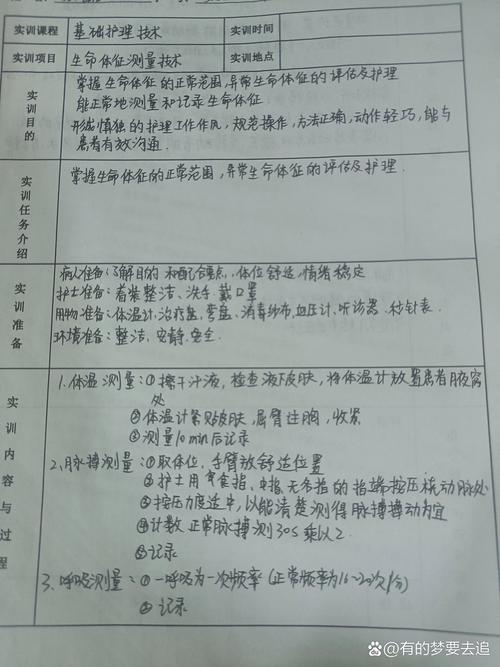 实训课程 基础护理技术 实训时间
实训项目 生命体征测量技术 实训地点
实训目的
掌握生命体征的正常范围,异常生命体征的评估及护理
能正常地测量和记录生命体征
形成慎独的护理工作作风,规范操作,方法正确,动作轻巧,能与
患者有效沟通.
实训任务介绍
掌握生命体征的正常范围,异常生命体征的评估及护理.
实训准备
病人准备:了解目的和配合要点,体位舒适,情绪稳定
护士准备:着装整洁、洗手、戴口罩
用物准备:体温计、治疗盘、弯盘、消毒纱布、血压计、听诊器、秒针表.
环境准备:整洁、安静、安全.
实训内容与过程
1.体温测量:①擦干汗液,检查液下皮肤,将体温计放置患者腋窝
处
②体温计紧贴皮肤,屈臂过胸,收紧
③测量10min后记录
2.脉搏测量:①取体位,手臂放舒适位置
②护士用食指、中指、无名指的指端按压桡动脉处
③按压力度适中,以能清楚测得脉搏搏动为宜
④计数 正常脉搏测30s乘以2.
⑤记录
3.呼吸测量:①一呼吸为一次频率(正常频率为16~20次/分)
②记录
@有的梦要去追